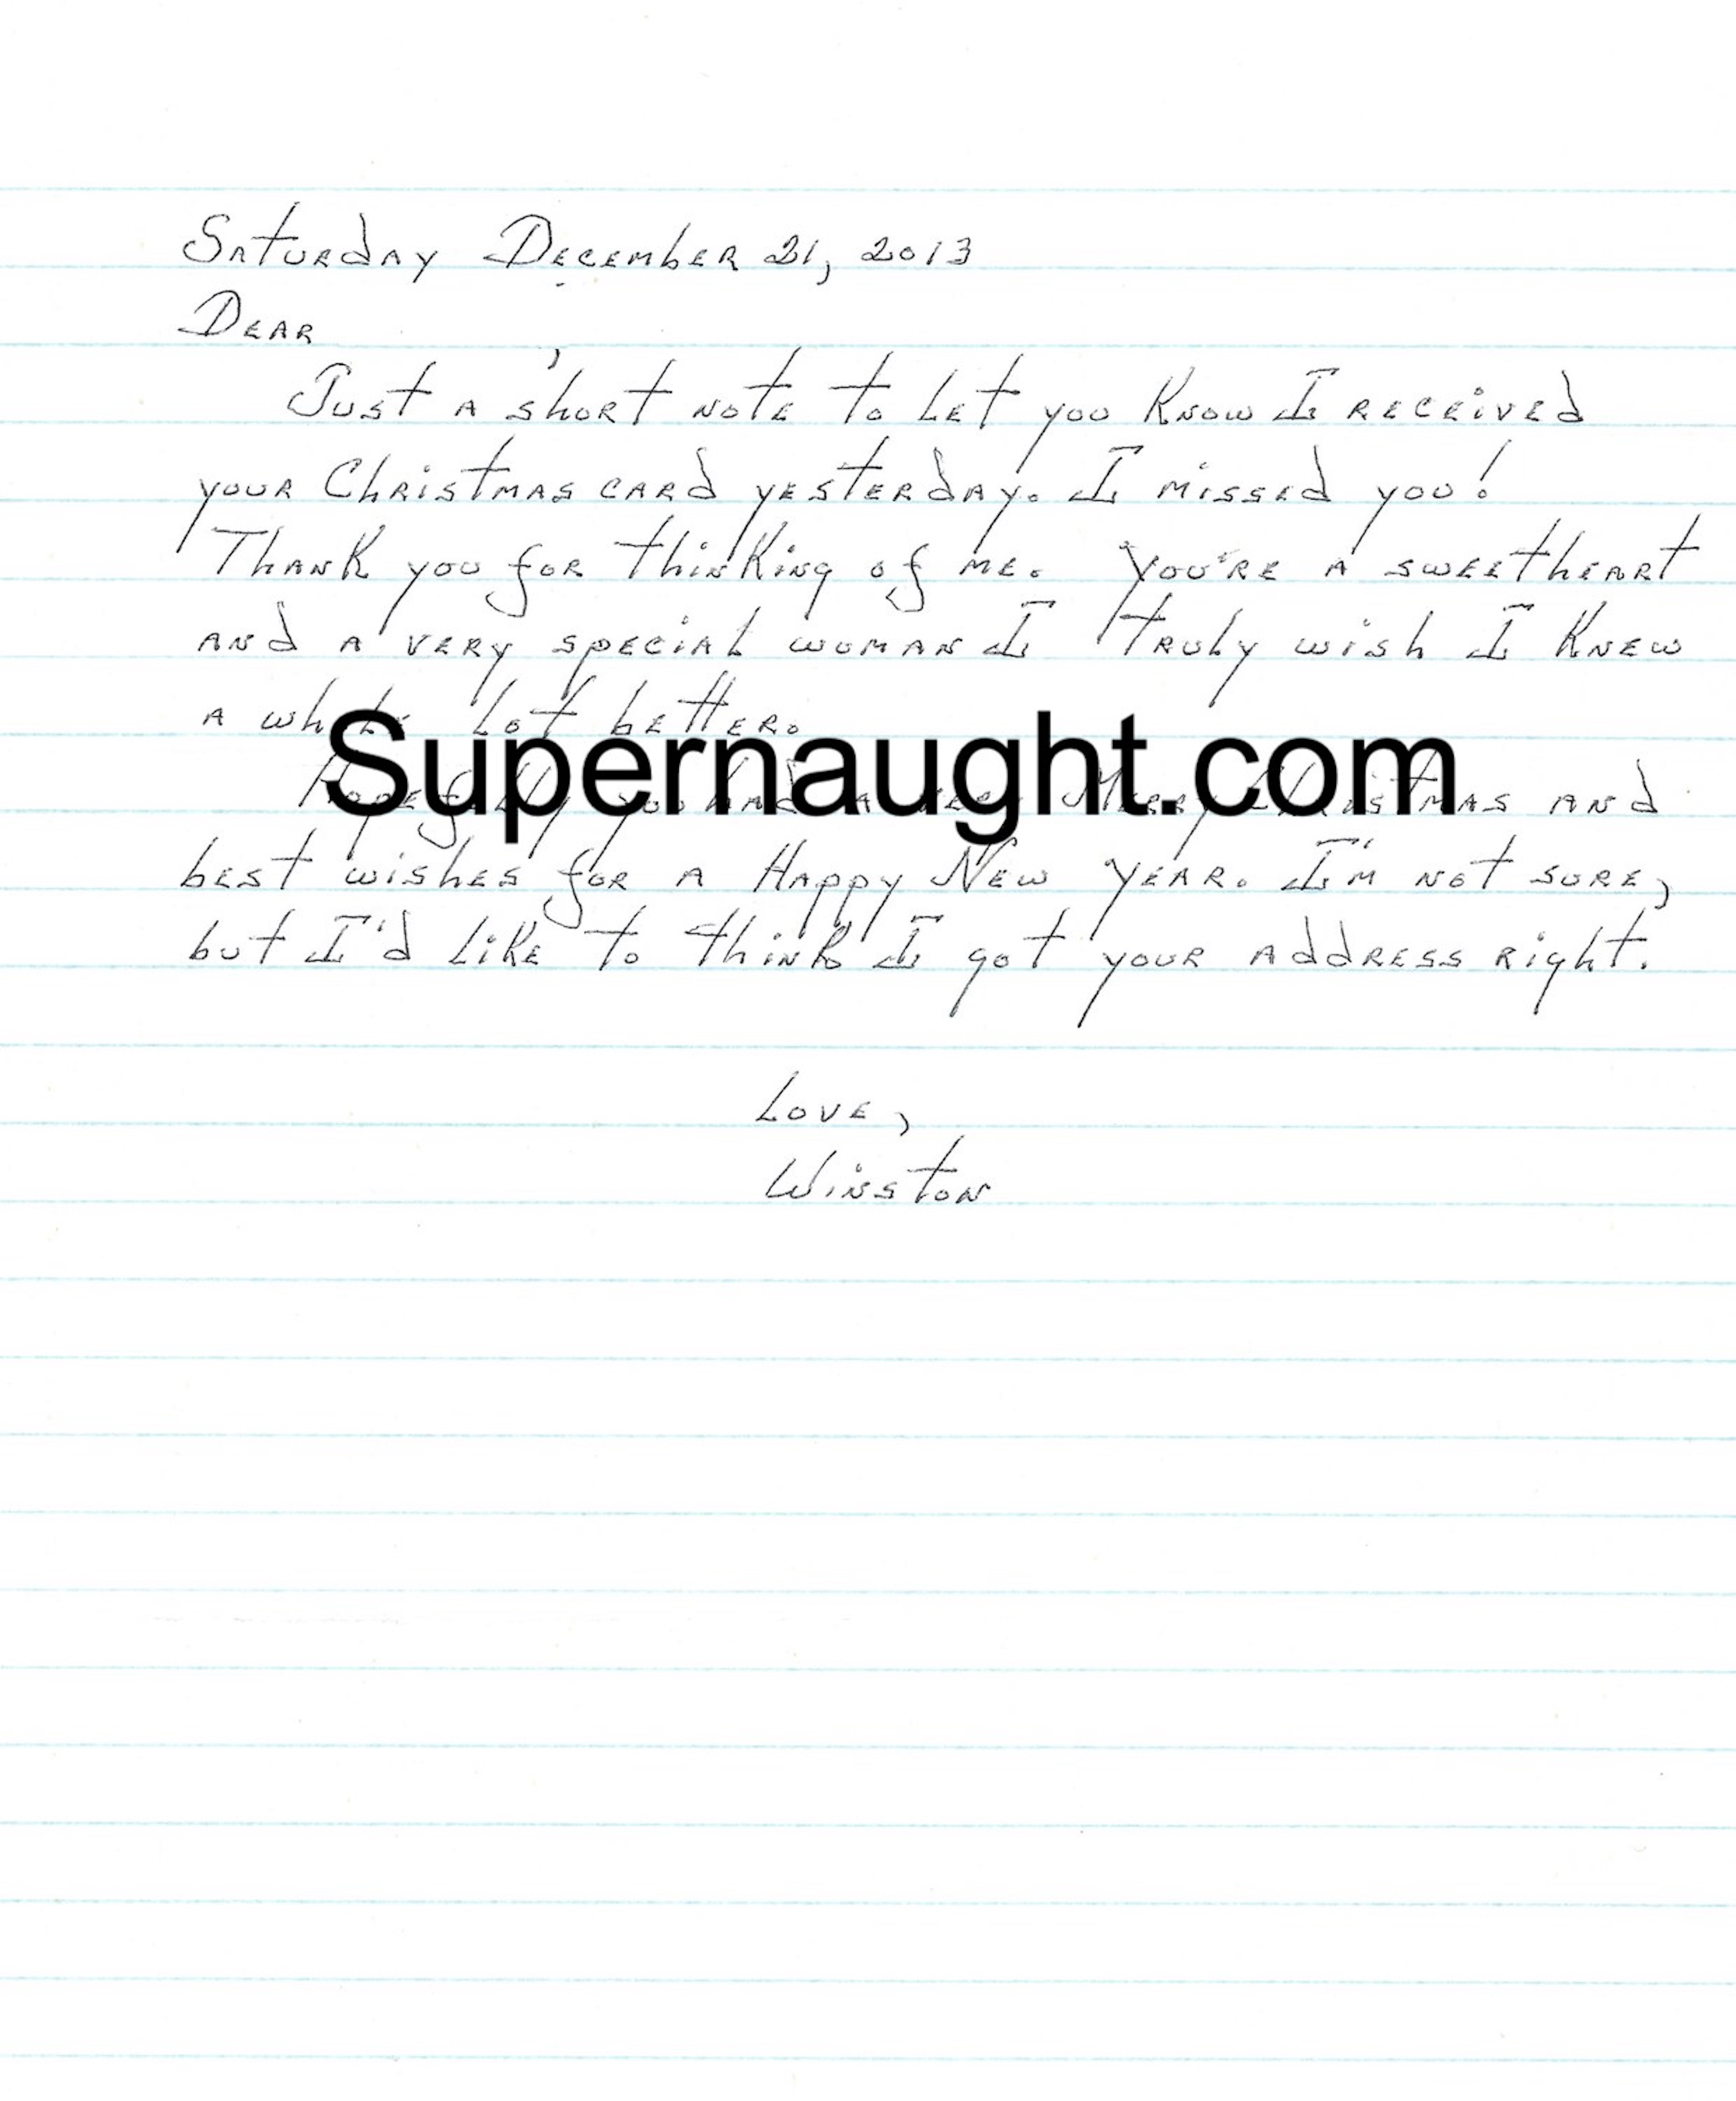 Saturday December 21, 2013
Dear
,
Just a short note to let you know I received
your Christmas card yesterday. I missed you!
Thank you for thinking of me. You're a sweetheart
and a very special woman I truly wish I knew
a whole lot better.
Supernaught.com
Hopefully you had a very Merry Christmas and
best wishes for a Happy New Year. I'm not sure,
but I'd like to think I got your address right.
Love,
Winston